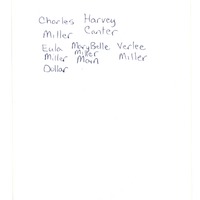 Charles Harvey
Miller Canter
Eula MaryBelle Verlee
Miller Miller Miller
Dollar Main